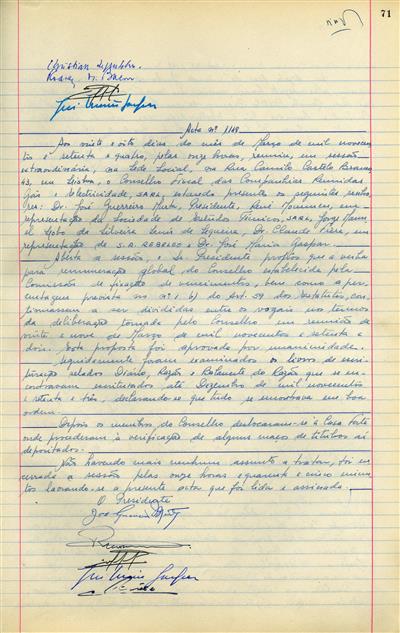 71
Acta nº 1148
Aos vinte e oito dias do mês de Março de mil novecen-
tos e setenta e quatro, pelas onze horas, reuniu, em sessão
extraordinária, na Sede Social, na Rua Camilo Castelo Branco,
43, em Lisboa, o Conselho Fiscal das Companhias Reunidas
Gás e Electricidade, SARL, estando presente os seguintes senho-
res: Dr. José Guerreiro Presidente, René em
representação da Sociedade de Estudos Técnicos, SARL, Jorge
da Silveira de Siqueira, Dr. Claude em
representação de S.A. e Dr. José Maria Gaspar.
Aberta a sessão, o Sr. Presidente propôs que a verba
para remuneração global do Conselho estabelecida pela
Comissão de fixação de vencimentos, bem como a per-
centagem prevista no nº 1 b) do Art. 59 dos Estatutos, con-
tinuassem a ser divididas entre os vogais nos termos
da deliberação tomada pelo Conselho em reunião de
vinte e nove de Março de mil novecentos e setenta e
dois. Esta proposta foi aprovada por unanimidade.
Seguidamente foram examinados os livros de escri-
turação selados Diário, Razão e Balancete do Razão que se en-
contravam escriturados até Dezembro de mil novecentos
e setenta e três, declarando-se que tudo se encontrava em boa
ordem.
Depois os membros do Conselho deslocaram-se à Casa Forte
onde procederam à verificação de alguns maços de títulos aí
depositados.
Não havendo mais nenhum assunto a tratar, foi en-
cerrada a sessão pelas onze horas e quarenta e cinco minu-
tos lavrando-se a presente acta que foi lida e assinada.
O Presidente